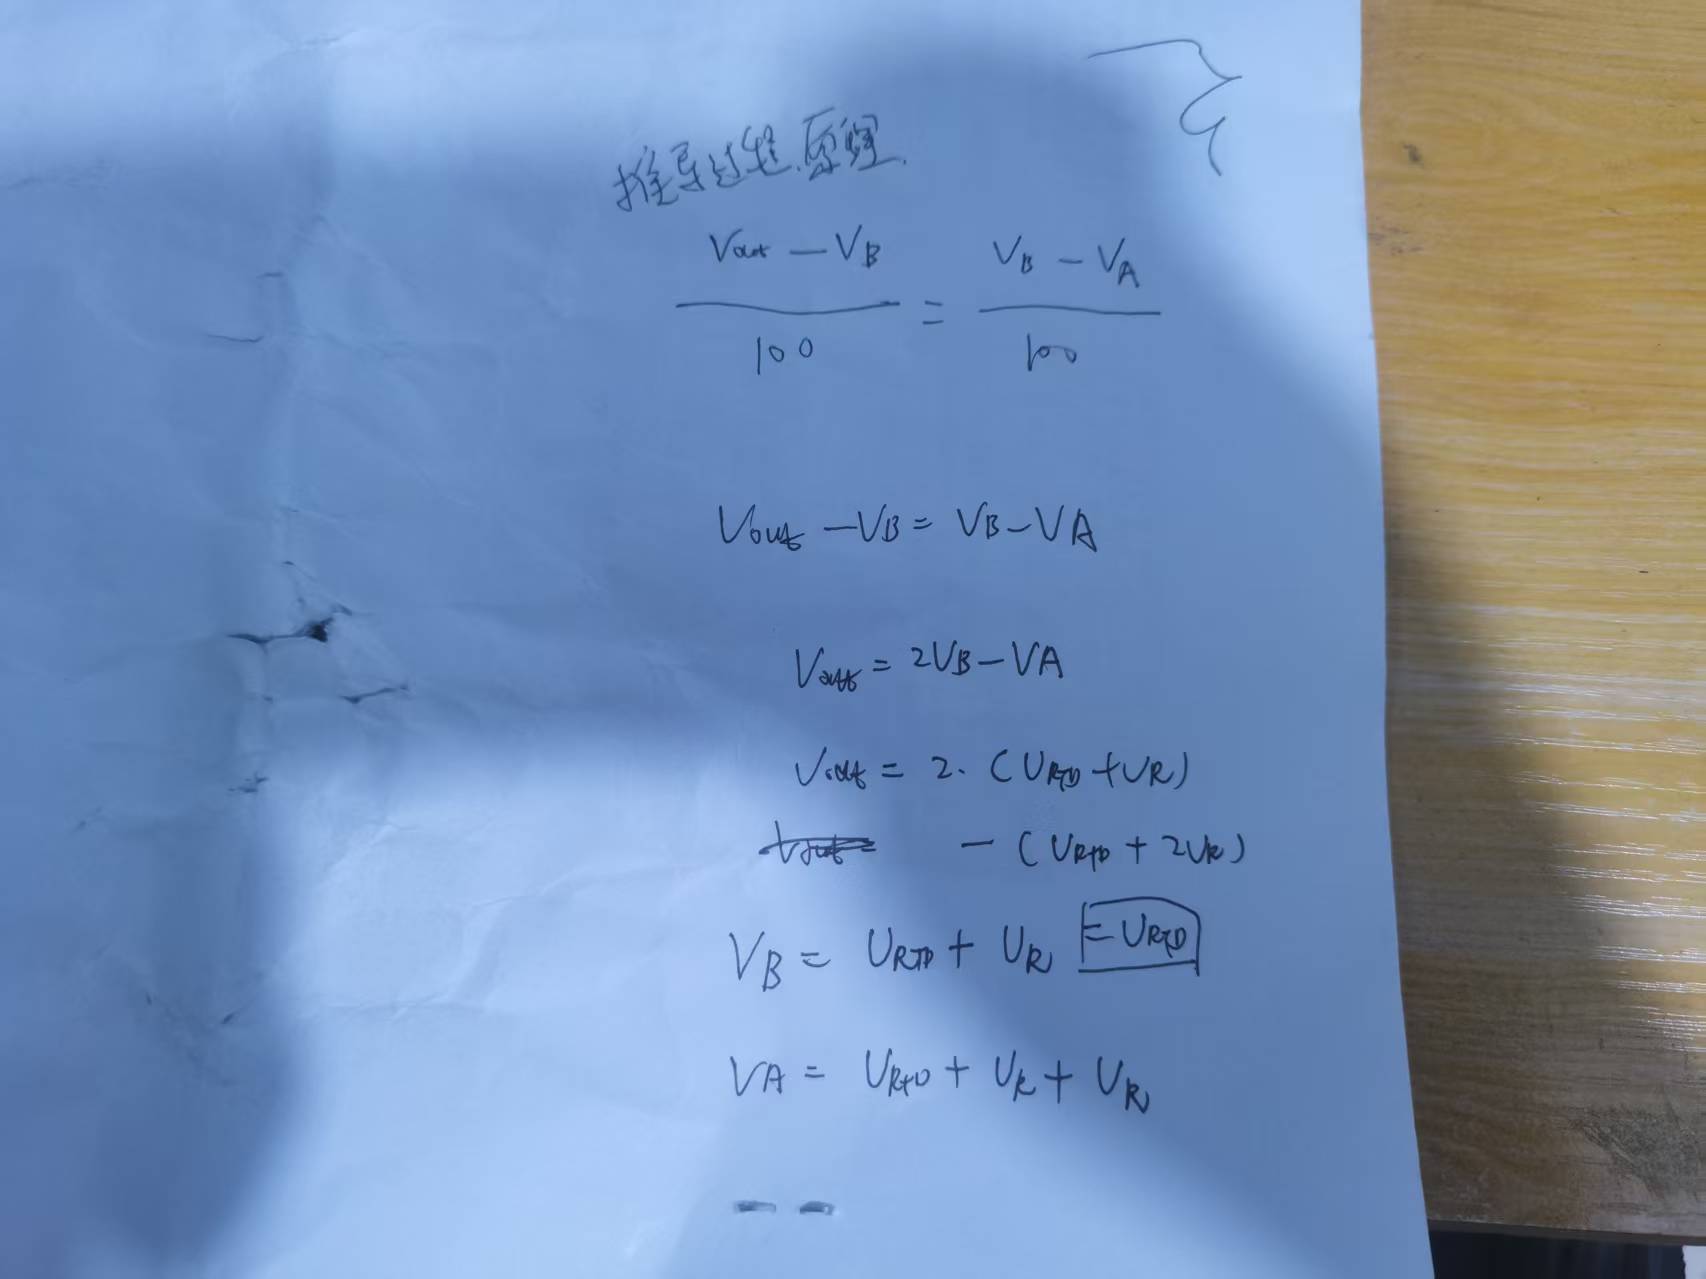 推导过程.原理.
Vout - VB / 100 = VB - VA / 100
Vout - VB = VB - VA
Vout = 2VB - VA
Vout = 2. (URTD + UR)
Vout = - (URTD + 2UR)
VB = URTD + UR = URTD
VA = URTD + UR + UR